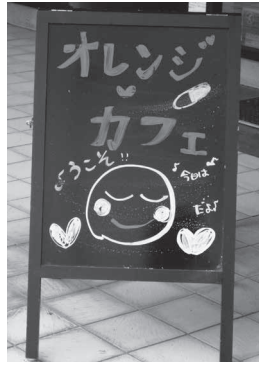 オレンジ
カフェ
ようこそ!!
♪今日は♪
だよ♪